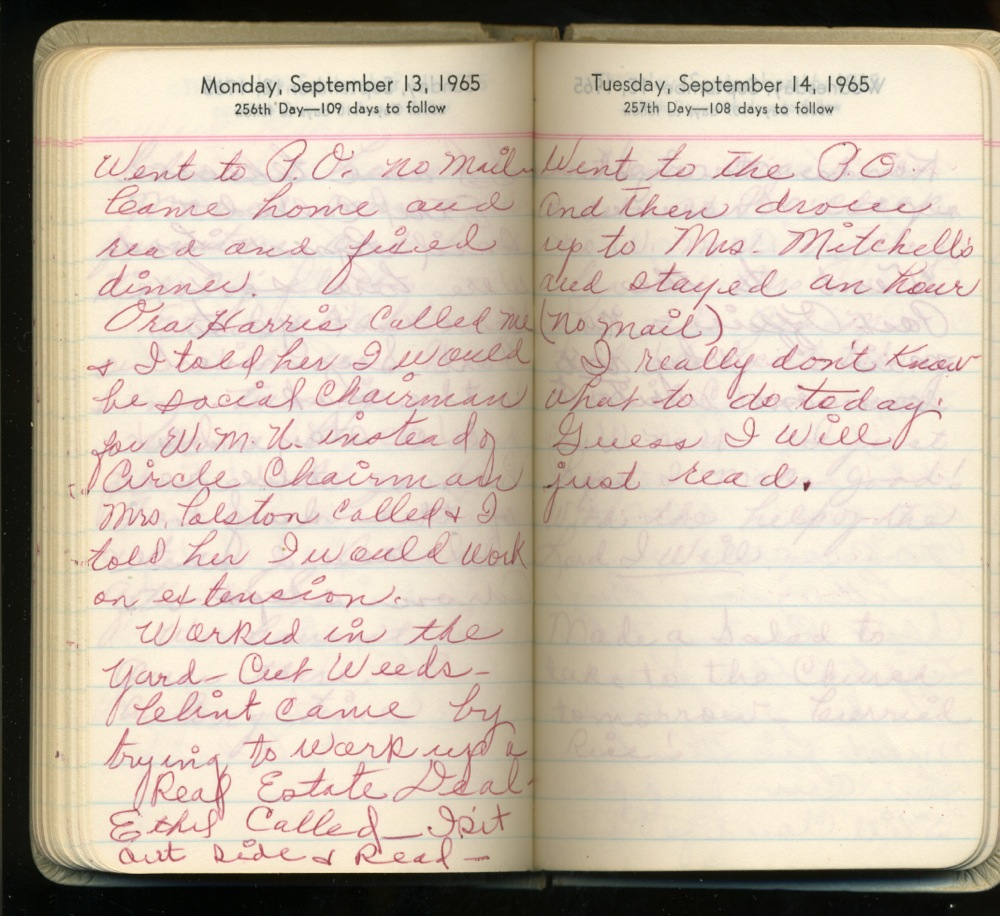 Monday, September 13, 1965
256th Day—109 days to follow
Went to P.O. no mail
Came home and
read and fixed
dinner.
Ora Harris called me
& I told her I would
be social Chairman
for W.M.U. instead of
Circle Chairman
Mrs. Colston called & I
told her I would work
on extension.
Worked in the
Yard – Cut Weeds –
Clint came by
trying to work up a
Real Estate Deal –
Ethel Called – I sit
out side & Read –
Tuesday, September 14, 1965
257th Day—108 days to follow
Went to the P.O.
and then drove
up to Mrs. Mitchell's
and stayed an hour
(no mail)
I really don't know
what to do today.
Guess I will
just read.
Made a salad to
take to the Church
tomorrow